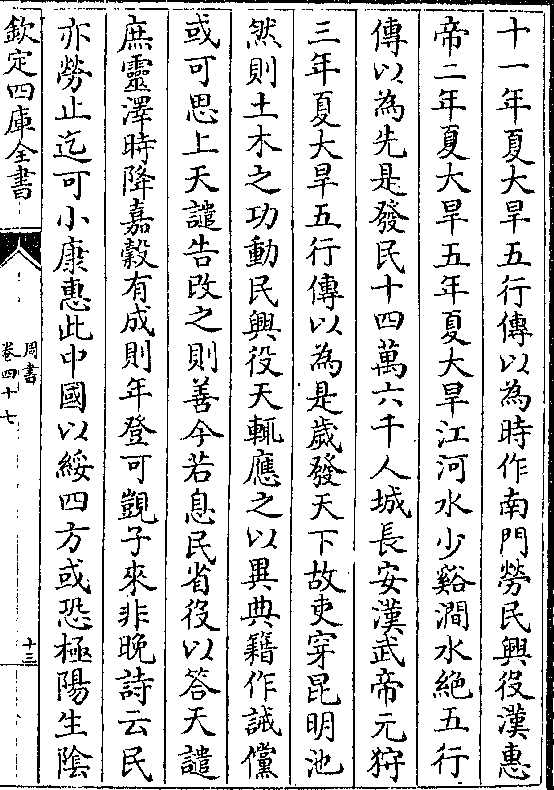 十一年夏大旱五行傳以為時作南門勞民興役漢惠
帝二年夏大旱五年夏大旱江河水少谿澗水絶五行
傳以為先是發民十四萬六千人城長安漢武帝元狩
三年夏大旱五行傳以為是歲發天下故吏穿昆明池
然則土木之功動民興役天輒應之以異典籍作誡儻
或可思上天譴告改之則善今若息民省役以答天譴
庶靈澤時降嘉穀有成則年登可覬子來非晚詩云民
亦勞止迄可小康惠此中國以綏四方或恐極陽生隂
欽定四庫全書
周書
卷四十七
十三